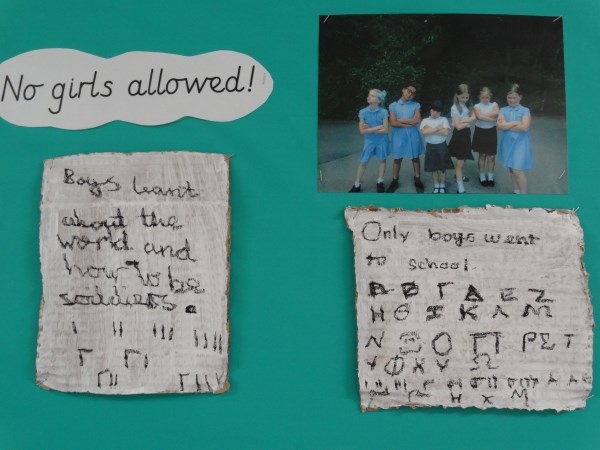 No girls allowed!
Boys learnt
about the
world and
how to be
soldiers.
I II III IIII
Γ ΓI
ΓII ΓIII
Only boys went
to school.
Α Β Γ Δ Ε Ζ
Η Θ Ι Κ Λ Μ
Ν Ξ Ο Π Ρ Σ Τ
Υ Φ Χ Ψ Ω
Η Χ Μ